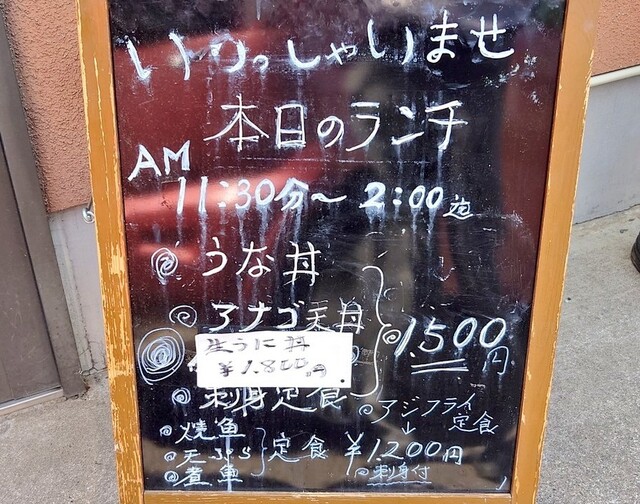 いらっしゃいませ
本日のランチ
AM
11:30分～2:00迄
うな丼
アナゴ天丼
1,500円
生うに丼
¥1.800円
刺身定食
アジフライ
定食
焼魚
天ぷら
煮魚
定食 ¥1,200円
刺身付